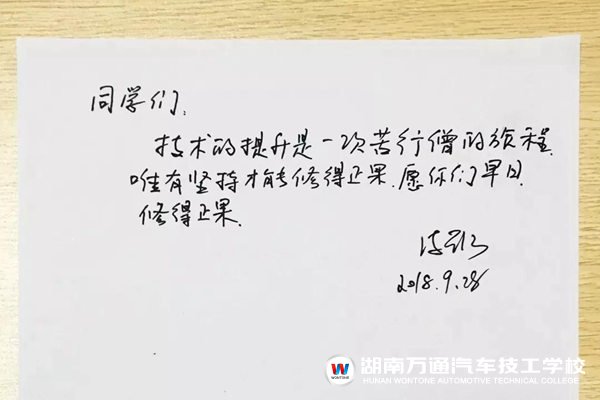 同学们:
技术的提升是一次苦行僧的旅程.
唯有坚持才能修得正果.愿你们早日
修得正果.
2018.9.28
WONTONE
湖南万通汽车技工学校
HUNAN WONTONE AUTOMOTIVE TECHNICAL COLLEGE